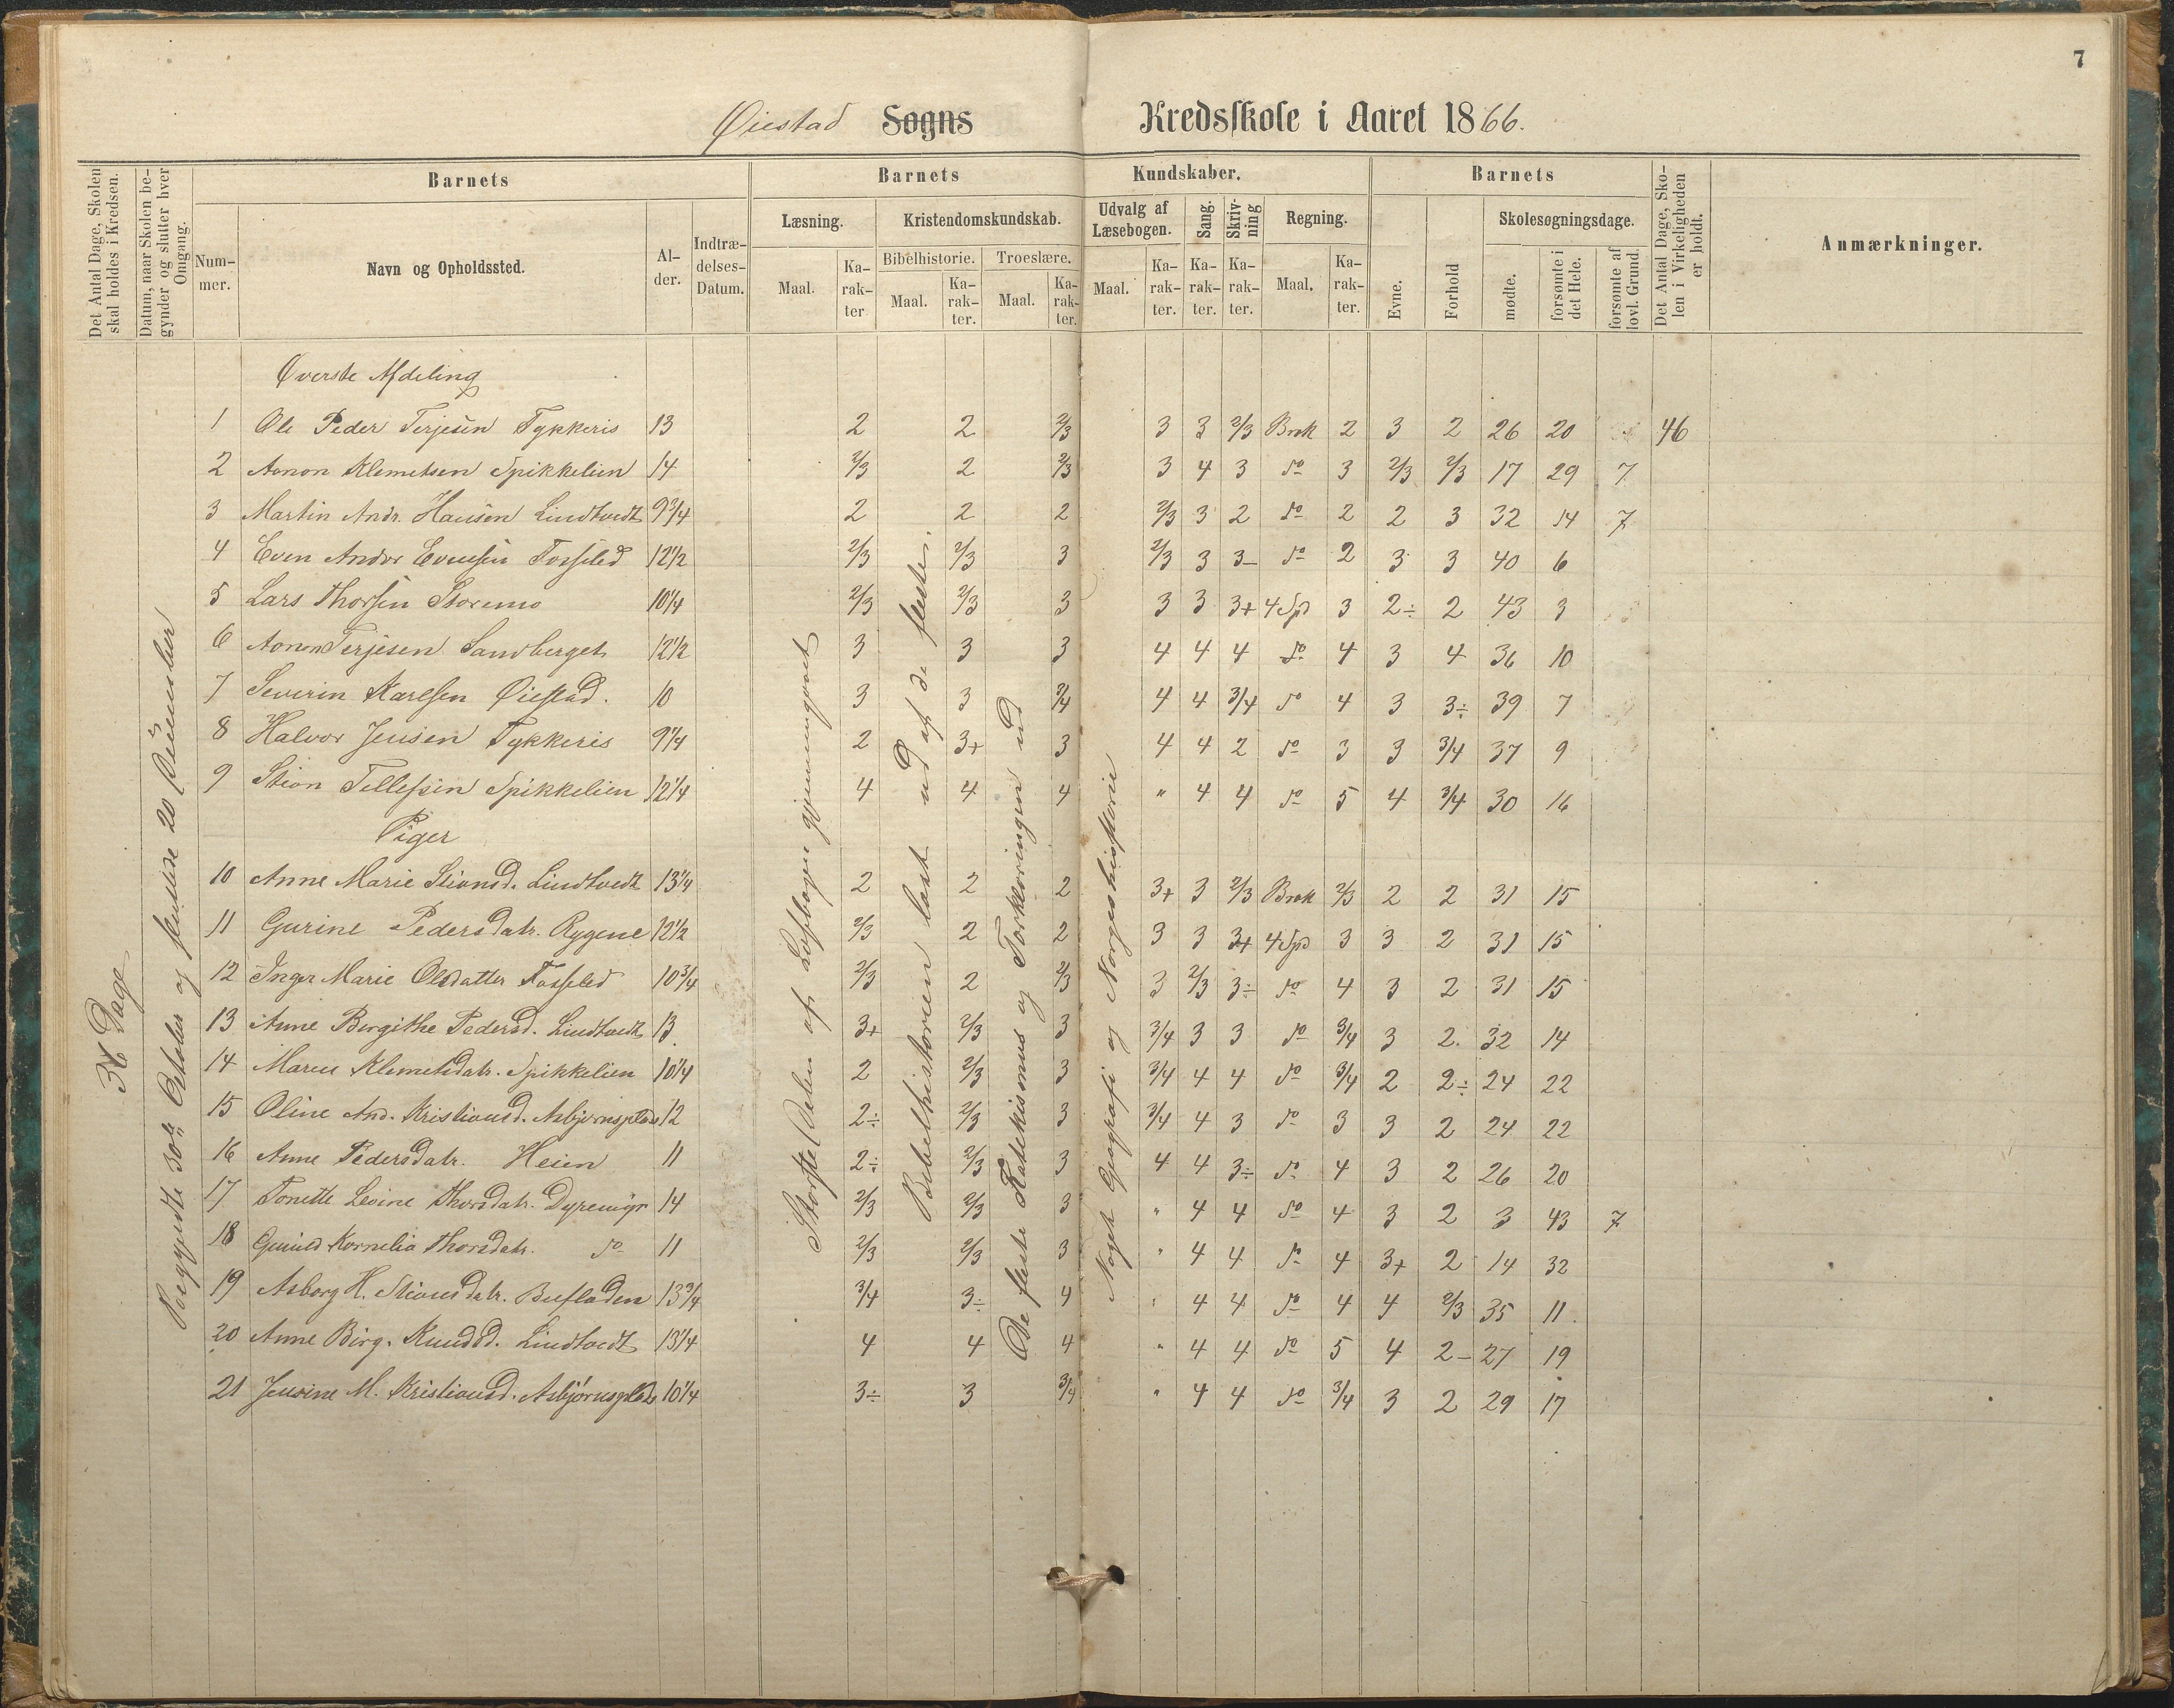 7
Øiestad Sogns Kredsskole i Aaret 1866.
Det Antal Dage, Skolen skal holdes i Kredsen.
Datum, naar Skolen begynder og slutter hver Omgang.
Barnets
Barnets Kundskaber.
Barnets
Det Antal Dage, Skolen i Virkeligheden er holdt.
Anmærkninger.
Nummer.
Navn og Opholdssted.
Alder.
Indtrædelses-Datum.
Læsning.
Kristendomskundskab.
Udvalg af Læsebogen.
Sang.
Skrivning
Regning.
Evne.
Forhold
Skolesøgningsdage.
Bibelhistorie.
Troeslære.
Maal. Karakter
Maal. Karakter.
Maal. Karakter.
Maal. Karakter.
Karakter.
Karakter.
Maal. Karakter.
mødte.
forsømte i det Hele.
forsømte af lovl. Grund.
36 Dage
Begyndte 30te Oktober og sluttede 20 Desember
Største Delen af Læsebogen gjennemgaaet
Bibelhistorien læst ud af de fleste.
De fleste Katekismus og Forklaringen ud
Noget Geografi og Norgeshistorie
Øverste Afdeling
1 Ole Peder Terjesen Tykkeris 13 2 2 2/3 3 3 2/3 Brøk 2 3 2 26 20 46
2 Aanon Klemetsen Spikkelien 14 2/3 2 2/3 3 4 3 do 3 2/3 2/3 17 29 7
3 Martin Andr. Hansen Lindtvedt 9 3/4 2 2 2 2/3 3 2 do 2 2 3 32 14 7
4 Even Andor Evensen Fosselid 12 1/2 2/3 2/3 3 2/3 3 3- do 2 3 3 40 6
5 Lars Thorsen Storemo 10 1/4 2/3 2/3 3 3 3 3+ 4 Sp 3 2÷ 2 43 3
6 Aanon Terjesen Sandberget 12 1/2 3 3 3 4 4 4 do 4 3 4 36 10
7 Severin Karlsen Øiestad. 10 3 3 3/4 4 4 3/4 do 4 3 3÷ 39 7
8 Halvor Jensen Tykkeris 9 1/4 2 3+ 3 4 4 2 do 3 3 3/4 37 9
9 Stian Tellefsen Spikkelien 12 1/4 4 4 4 " 4 4 do 5 4 3/4 30 16
Piger
10 Anne Marie Stiansd. Lindtvedt 13 1/4 2 2 2 3+ 3 2/3 Brøk 2/3 2 2 31 15
11 Gurine Pedersdatr. Rygene 12 1/2 2/3 2 2 3 3 3+ 4 Sp 3 3 2 31 15
12 Inger Marie Olsdatter Fosselid 10 3/4 2/3 2 2/3 3 2/3 3÷ do 4 3 2 31 15
13 Anne Birgithe Pedersd. Lindtvedt 13 3+ 2/3 3 3/4 3 3 do 3/4 3 2. 32 14
14 Maren Klemetsdatr. Spikkelien 10 1/4 2 2/3 3 3/4 4 4 do 3/4 2 2÷ 24 22
15 Oline And. Kristiansd. Asbjørnsplads 12 2÷ 2/3 3 3/4 4 3 do 3 3 2 24 22
16 Anne Pedersdatr. Heien 11 2÷ 2/3 3 4 4 3÷ do 4 3 2 26 20
17 Tonette Levine Thorsdatr. Dyremyr 14 2/3 2/3 3 " 4 4 do 4 3 2 3 43 7
18 Gunild Kornelia Thorsdatr. do 11 2/3 2/3 3 " 4 4 do 4 3+ 2 14 32
19 Asborg H. Stiansdatr. Bufladen 13 3/4 3/4 3÷ 4 " 4 4 do 4 4 2/3 35 11.
20 Anne Birg. Knudsd. Lindtvedt 13 1/4 4 4 4 " 4 4 do 5 4 2- 27 19
21 Jensine M. Kristiansd. Asbjørnsplads 10 1/4 3÷ 3 3/4 " 4 4 do 3/4 3 2 29 17